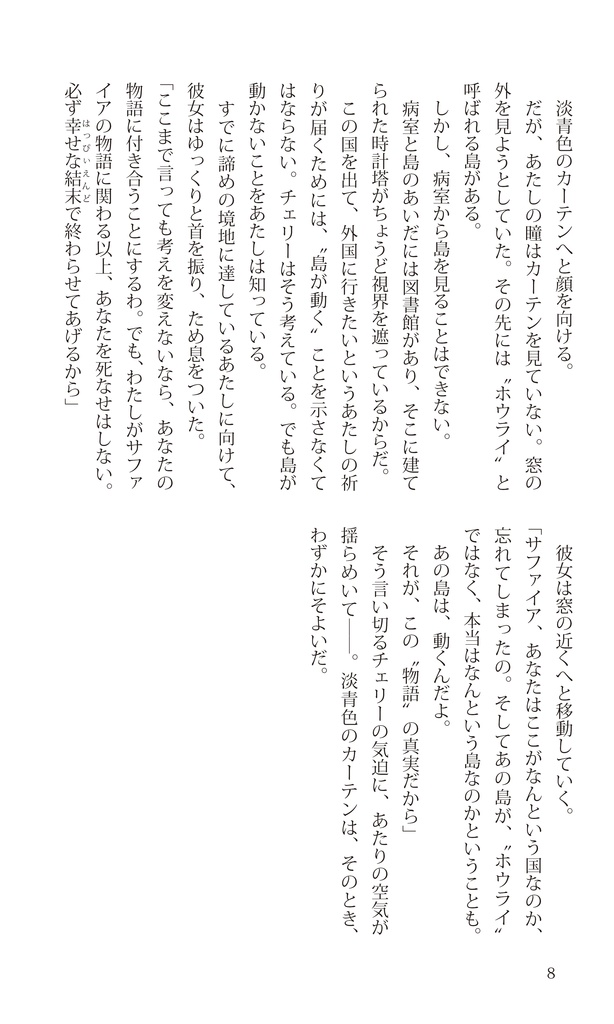 淡青色のカーテンへと顔を向ける。
　だが、あたしの瞳はカーテンを見ていない。窓の
外を見ようとしていた。その先には〝ホウライ〟と
呼ばれる島がある。
　しかし、病室から島を見ることはできない。
　病室と島のあいだには図書館があり、そこに建て
られた時計塔がちょうど視界を遮っているからだ。
　この国を出て、外国に行きたいというあたしの祈
りが届くためには、〝島が動く〟ことを示さなくて
はならない。チェリーはそう考えている。でも島が
動かないことをあたしは知っている。
　すでに諦めの境地に達しているあたしに向けて、
彼女はゆっくりと首を振り、ため息をついた。
「ここまで言っても考えを変えないなら、あなたの
物語に付き合うことにするわ。でも、わたしがサファ
イアの物語に関わる以上、あなたを死なせはしない。
必ず幸せな結末はっぴぃえんどで終わらせてあげるから」
　彼女は窓の近くへと移動していく。
「サファイア、あなたはここがなんという国なのか、
忘れてしまったの。そしてあの島が、〝ホウライ〟
ではなく、本当はなんという島なのかということも。
　あの島は、動くんだよ。
　それが、この〝物語〟の真実だから」
　そう言い切るチェリーの気迫に、あたりの空気が
揺らめいて――。淡青色のカーテンは、そのとき、
わずかにそよいだ。
8